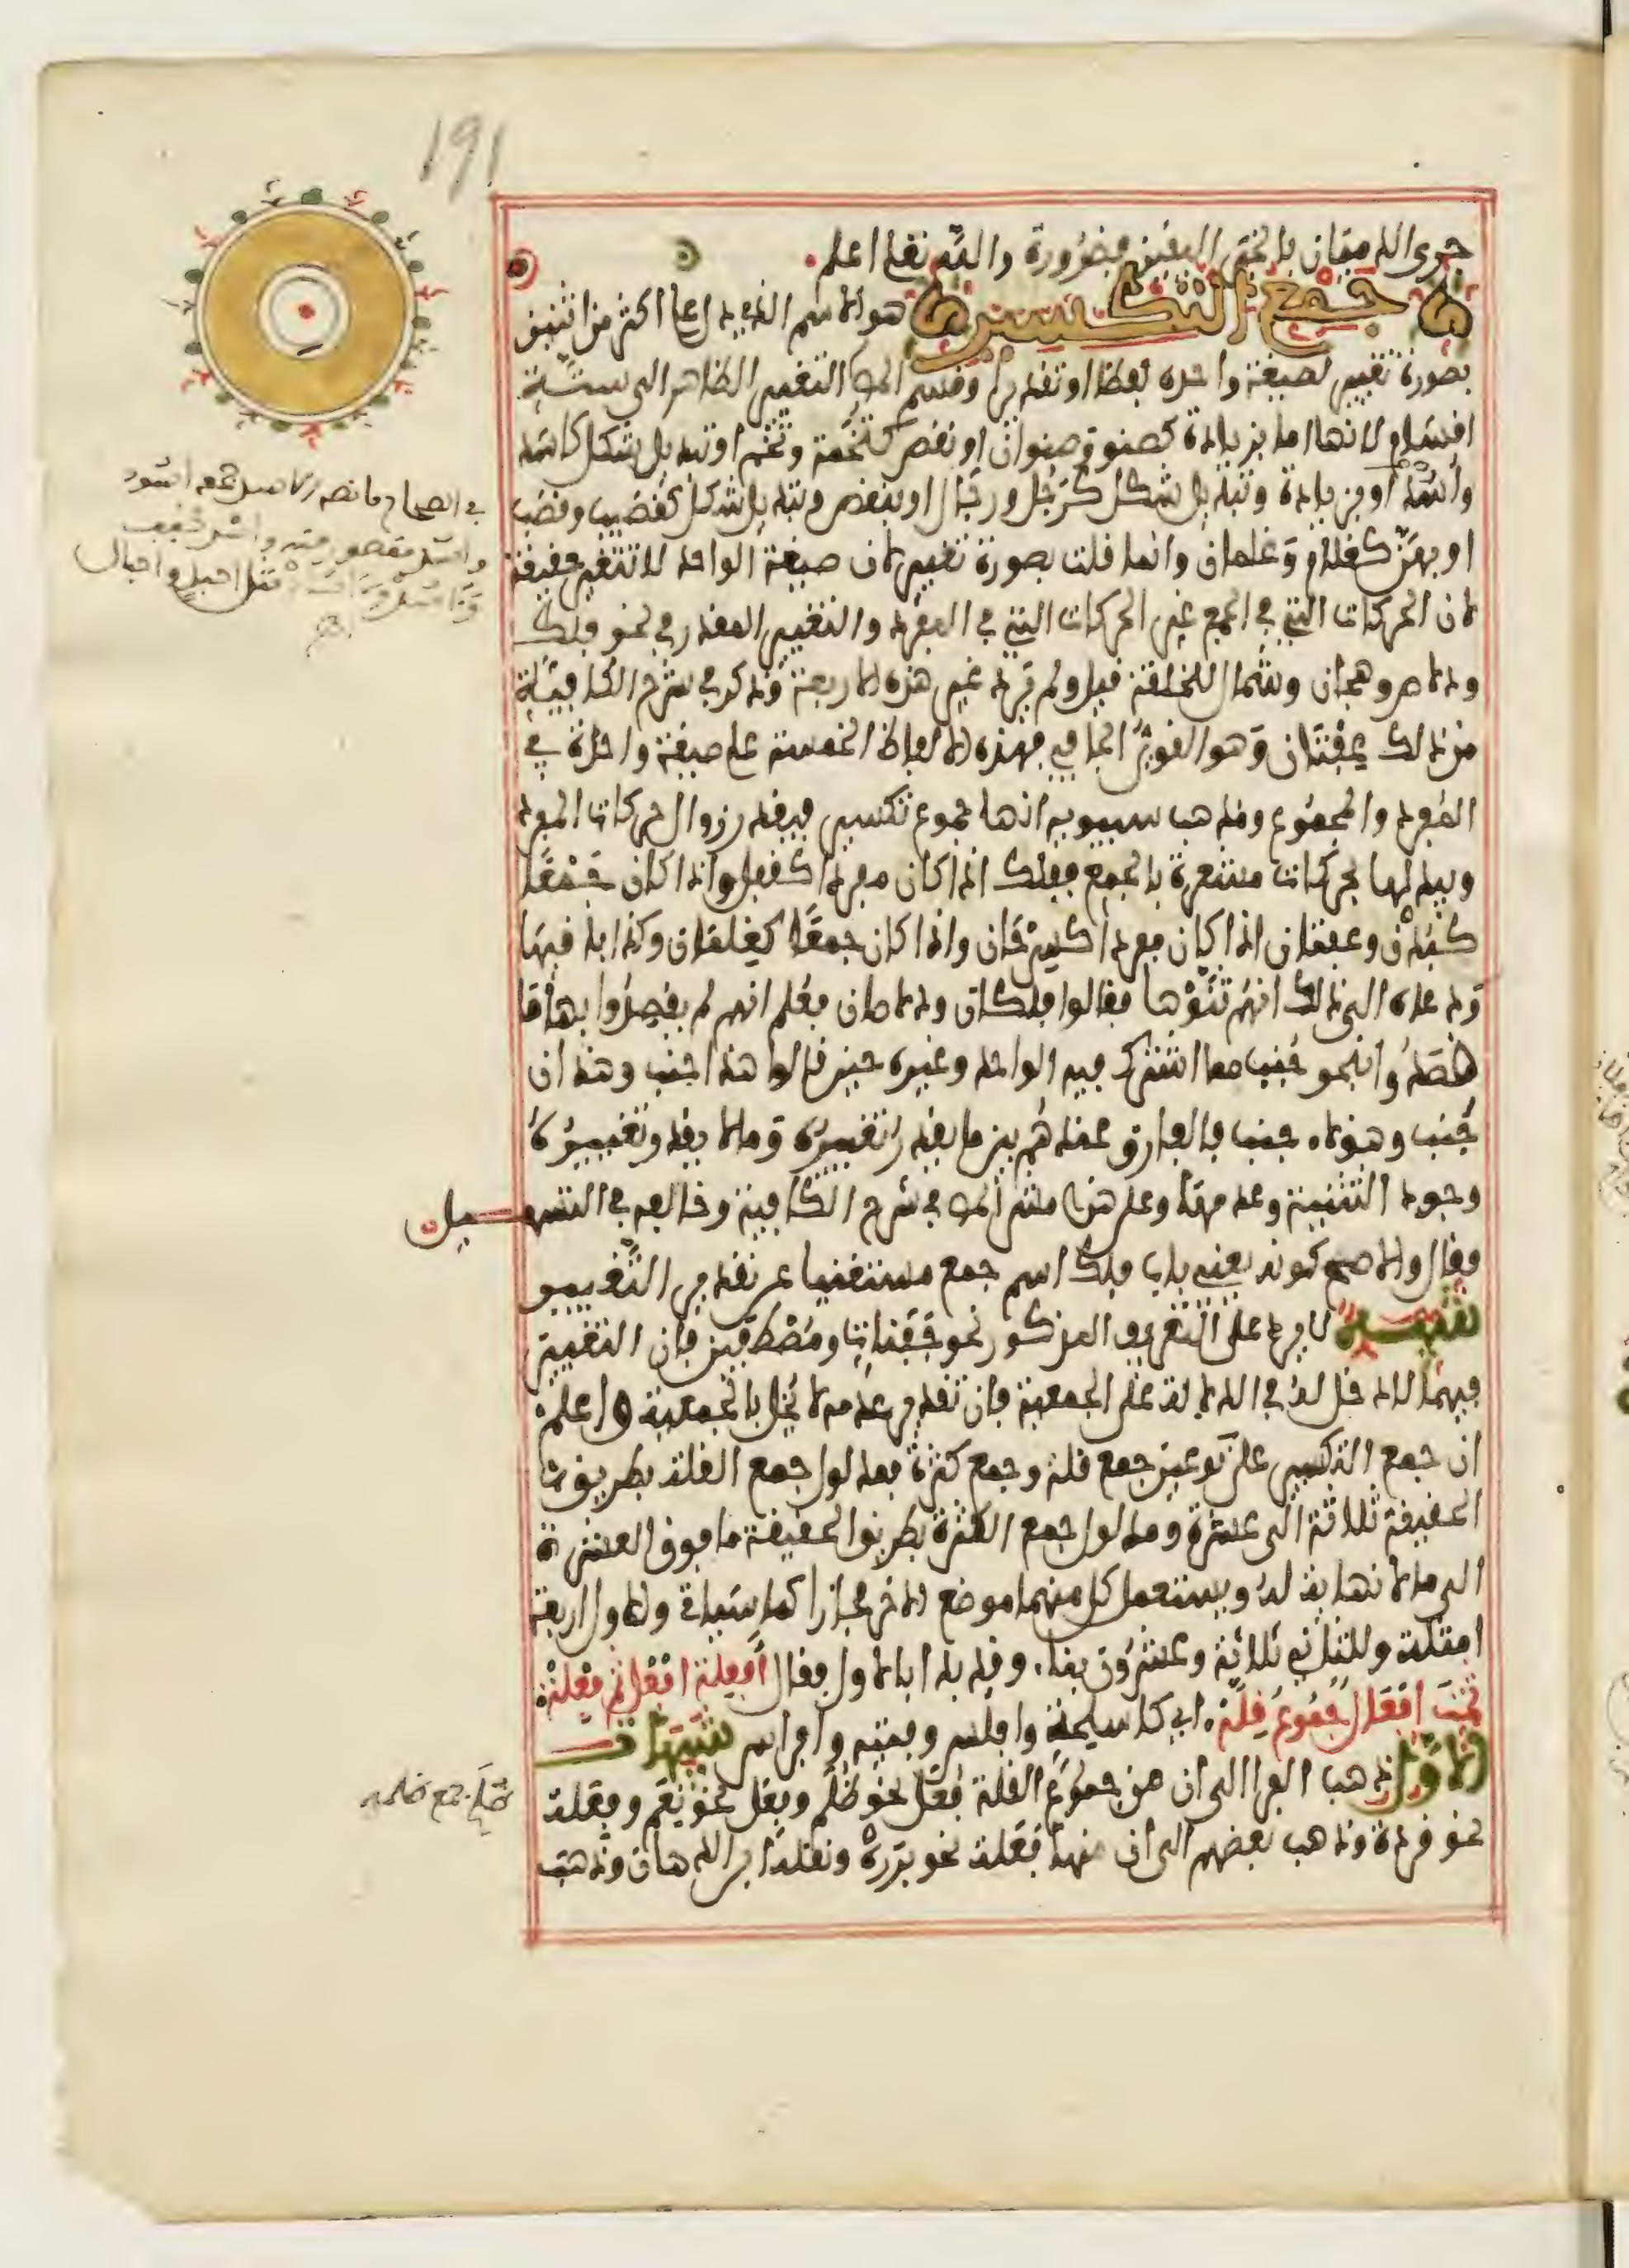 191
جرى الدميان بالخبر اليقين فضرورة والله تعلى اعلم
جمع التكسير هو الاسم الذي يدل على اكثر من اثنين
بصورة تغيير لصيغة واحده لفظا او تقديرا وقسم المص التغيير الظاهر الى ستة
اقسام لانها اما بزيادة كصنو وصنوان او نقص كتخمة وتخم او تبديل شكل كاسد
وأسد او بزيادة وتبديل شكل كرجل ورجال او بنقص وتبديل شكل كقضيب وقضب
او بهن كغلام وغلمان وانما قلت بصورة تغيير لان صيغة الواحد لا تتغير حقيقة
لان الحركات التي في الجمع غير الحركات التي في المفرد والتغيير المقدر في نحو فلك
ودلاص وهجان وشمال للخلقة قيل ولم يرد غير هذه الاربعة وذكر في شرح الكافية
من ذلك عفتان وهو القوي الجافي فهذه الالفاظ الخمسة على صيغة واحدة في
المفرد والمجموع ومذهب سيبويه انها جموع تكسير فيقدر زوال حركات المفرد
وتبديلها بحركات مشعرة بالجمع ففلك اذا كان مفردا كقفل واذا كان جمعا
كبدن وعفتان اذا كان مفردا كسرحان واذا كان جمعا كغلمان وكذا باقيها
ودعاه الى ذلك انهم ثنوها فقالوا فلكان ودلاصان فعلم انهم لم يقصدوا بها ما
قصدوا بنحو جنب مما اشترك فيه الواحد وغيره حين قالوا هذا جنب وهذان
جنب وهؤلاء جنب فالفارق عندهم بين ما يقدر تغييره وما لا يقدر تغييره
وجود التثنية وعدمها وعلى هذا مشى المص في شرح الكافية وخالفه في التسهيل
فقال والاصح كونه يعني باب فلك اسم جمع مستغنيا عن تقدير التغيير
تنبيه لا يرد على التعريف المذكور نحو جفنات ومصطفين فان التغيير
فيهما لا دخل له في الدلالة على الجمعية فان تقدير عدمه لا يخل بالجمعية واعلم
ان جمع التكسير على نوعين جمع قلة وجمع كثرة فمدلول جمع القلة بطريق
الحقيقة ثلاثة الى عشرة ومدلول جمع الكثرة بطريق الحقيقة ما فوق العشرة
الى ما لا نهاية له ويستعمل كل منهما موضع الاخر مجازا كما سياتي وللاول اربعة
امثلة وللثاني ثلاثة وعشرون بناء وقد بدا بالاول فقال أفعلة افعل ثم فعلة
ثمت أفعال جموع قلة اي كاسلحة وافلس وفتية وافراس تنبيهات
الاول ذهب الفرا الى ان من جموع القلة فعل نحو ظلم وفعل نحو نعم وفعلة
نحو قردة وذهب بعضهم الى ان منها فعلة نحو بررة ونقله ابن الدهان وذهب
في الصحاح ما نصه الاسد جمعه اسود
واسد مقصور منه واسد مخفف
مثل اجبل واجبال
اهـ
ظلم جمع ظلمه